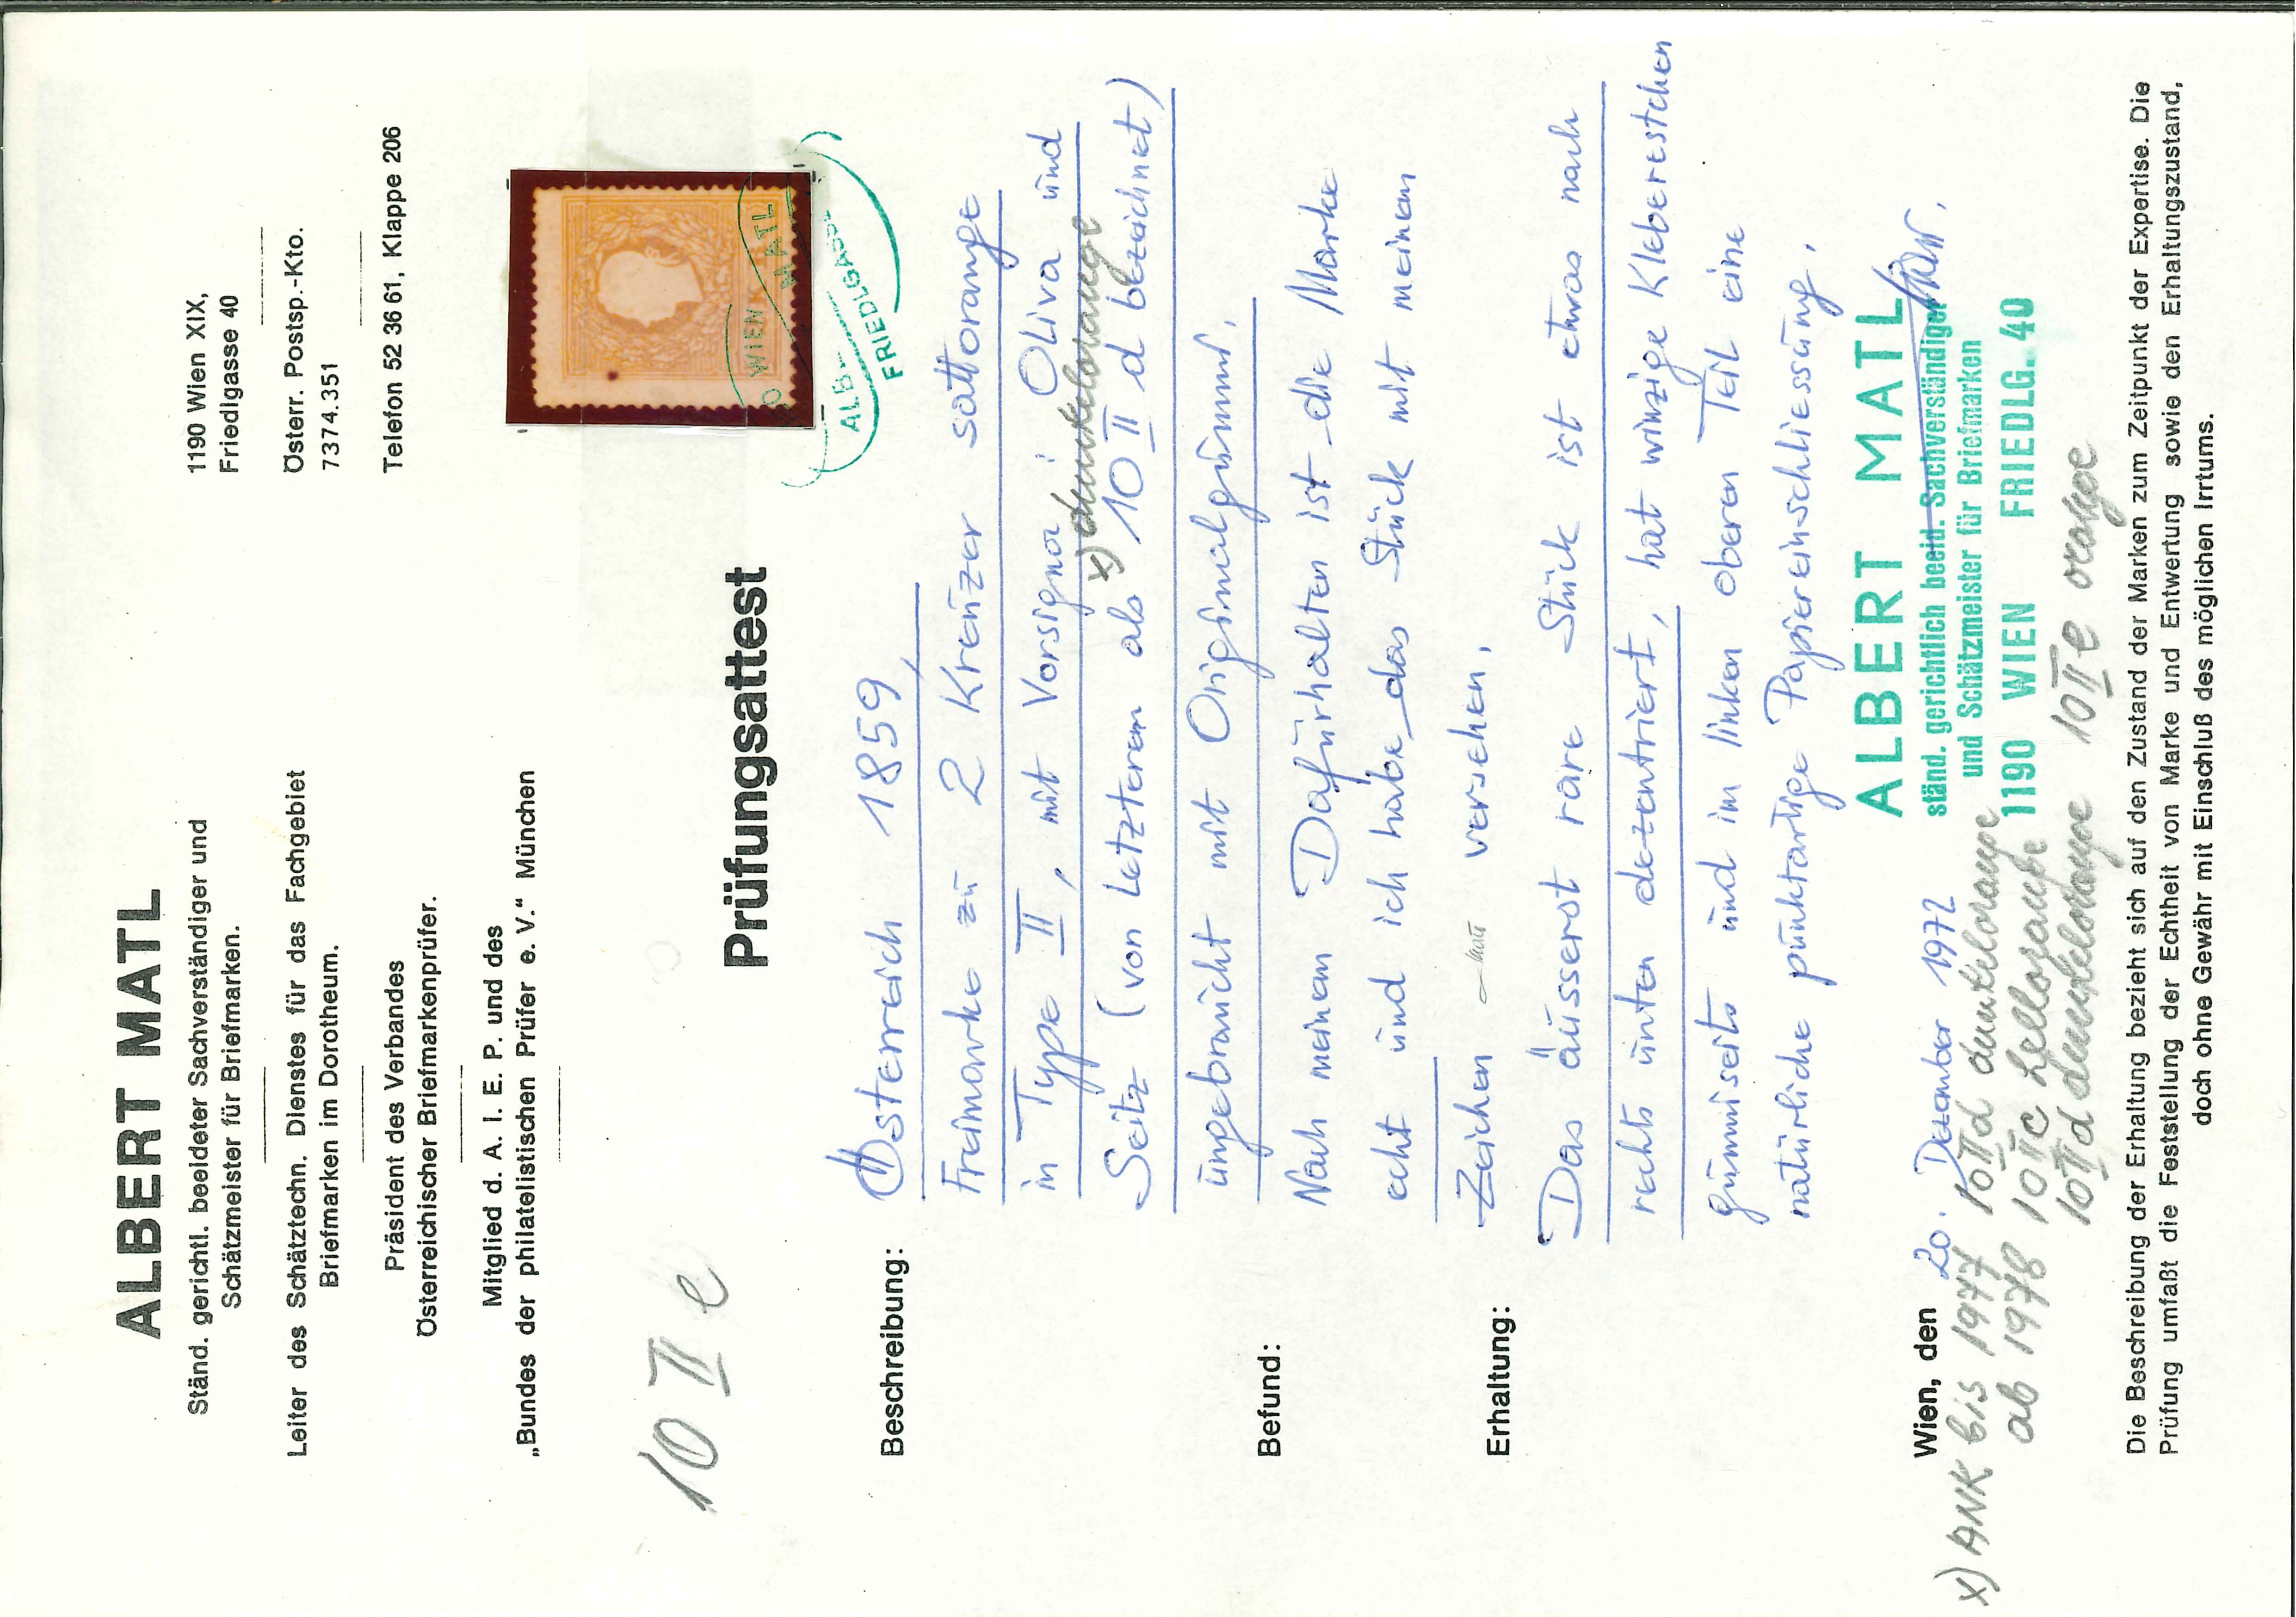 ALBERT MATL
Ständ. gerichtl. beeideter Sachverständiger und
Schätzmeister für Briefmarken.
Leiter des Schätztechn. Dienstes für das Fachgebiet
Briefmarken im Dorotheum.
Präsident des Verbandes
Österreichischer Briefmarkenprüfer.
Mitglied d. A. I. E. P. und des
„Bundes der philatelistischen Prüfer e. V." München
1190 Wien XIX,
Friedlgasse 40
Österr. Postsp.-Kto.
7374.351
Telefon 52 36 61, Klappe 206
10 II e
WIEN
MATL
ALB
FRIEDLGASSE
Prüfungsattest
Beschreibung:
Österreich 1859,
Freimarke zu 2 Kreuzer sattorange
in Type II, mit Vorsignat: Oliva und
x) dunkelorange
Seitz (von letzterem als 10 II d bezeichnet)
ungebraucht mit Originalgummi.
Befund:
Nach meinem Dafürhalten ist die Marke
echt und ich habe das Stück mit meinem
Zeichen Matl versehen.
Erhaltung:
Das äusserst rare Stück ist etwas nach
rechts unten dezentriert, hat winzige Kleberestchen
gummiseits und im linken oberen Teil eine
natürliche punktartige Papiereinschliessung.
Wien, den 20. Dezember 1972
ALBERT MATL
ständ. gerichtlich beeid. Sachverständiger
und Schätzmeister für Briefmarken
1190 WIEN FRIEDLG. 40
x) ANK bis 1977 10 II d dunkelorange
ab 1978 10 II c hellorange
10 II d dunkelorange 10 II e orange
Die Beschreibung der Erhaltung bezieht sich auf den Zustand der Marken zum Zeitpunkt der Expertise. Die
Prüfung umfaßt die Feststellung der Echtheit von Marke und Entwertung sowie den Erhaltungszustand,
doch ohne Gewähr mit Einschluß des möglichen Irrtums.